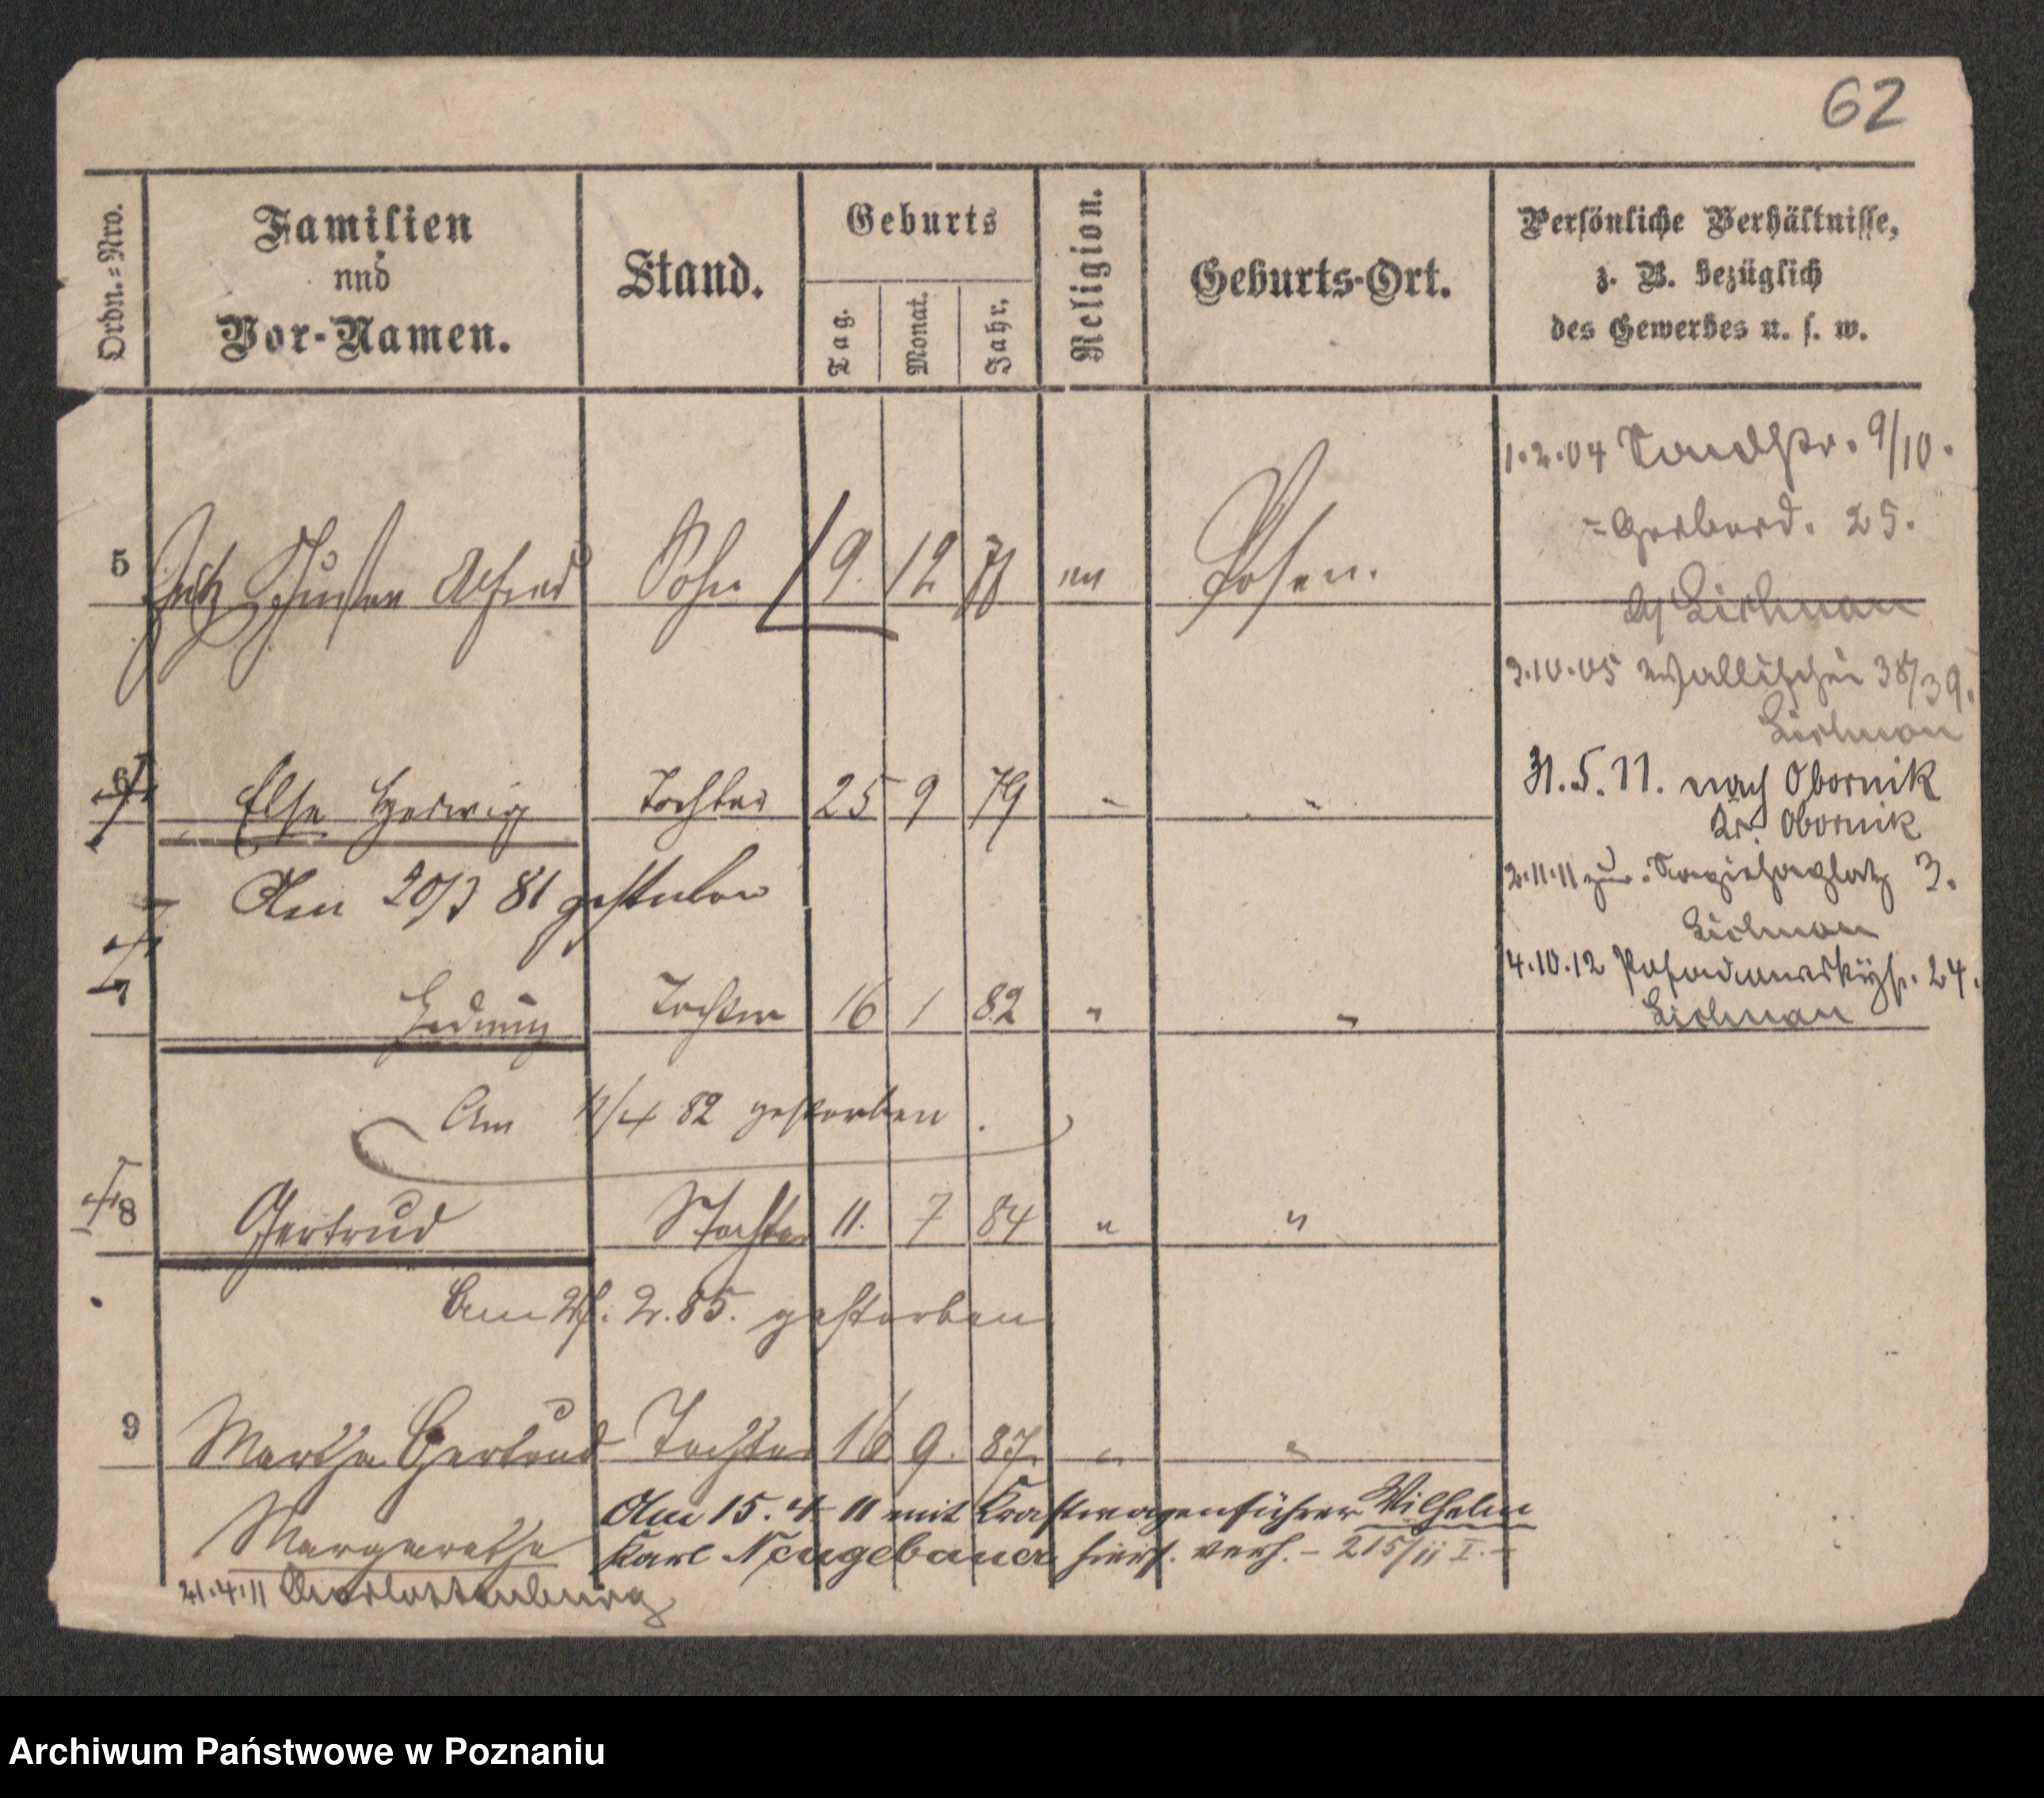 62
Ordn.=Nro.
Familien
und
Vor-Namen.
Stand.
Geburts
Tag.
Monat.
Jahr.
Religion.
Geburts-Ort.
Persönliche Verhältnisse,
z. B. bezüglich
des Gewerbes u. s. w.
1.2.04 9/10.
25.
5 Alfred Sohn 9. 12 Posen.
Eichman
3.10.05 Wallischei 38/39.
Eichman
31.5.11. nach Obornik
Kr. Obornik
6 Else Hedwig Tochter 25 9 79 " "
2.11.11 3.
Am 20/3 81 gestorben
Eichman
4.10.12 24.
Eichman
7 Hedwig Tochter 16 1 82 " "
Am 11/4 82 gestorben.
8 Gertrud Tochter 11. 7 84 " "
Am 2.85. gestorben
9 Martha Gertrud Tochter 16 9. 87. " "
Margarethe
Am 15.4 11 mit Kraftwagenführer Wilhelm
Karl Neugebauer hiers. verh. - 215/11 I. -
21.4.11 Charlottenburg
Archiwum Państwowe w Poznaniu